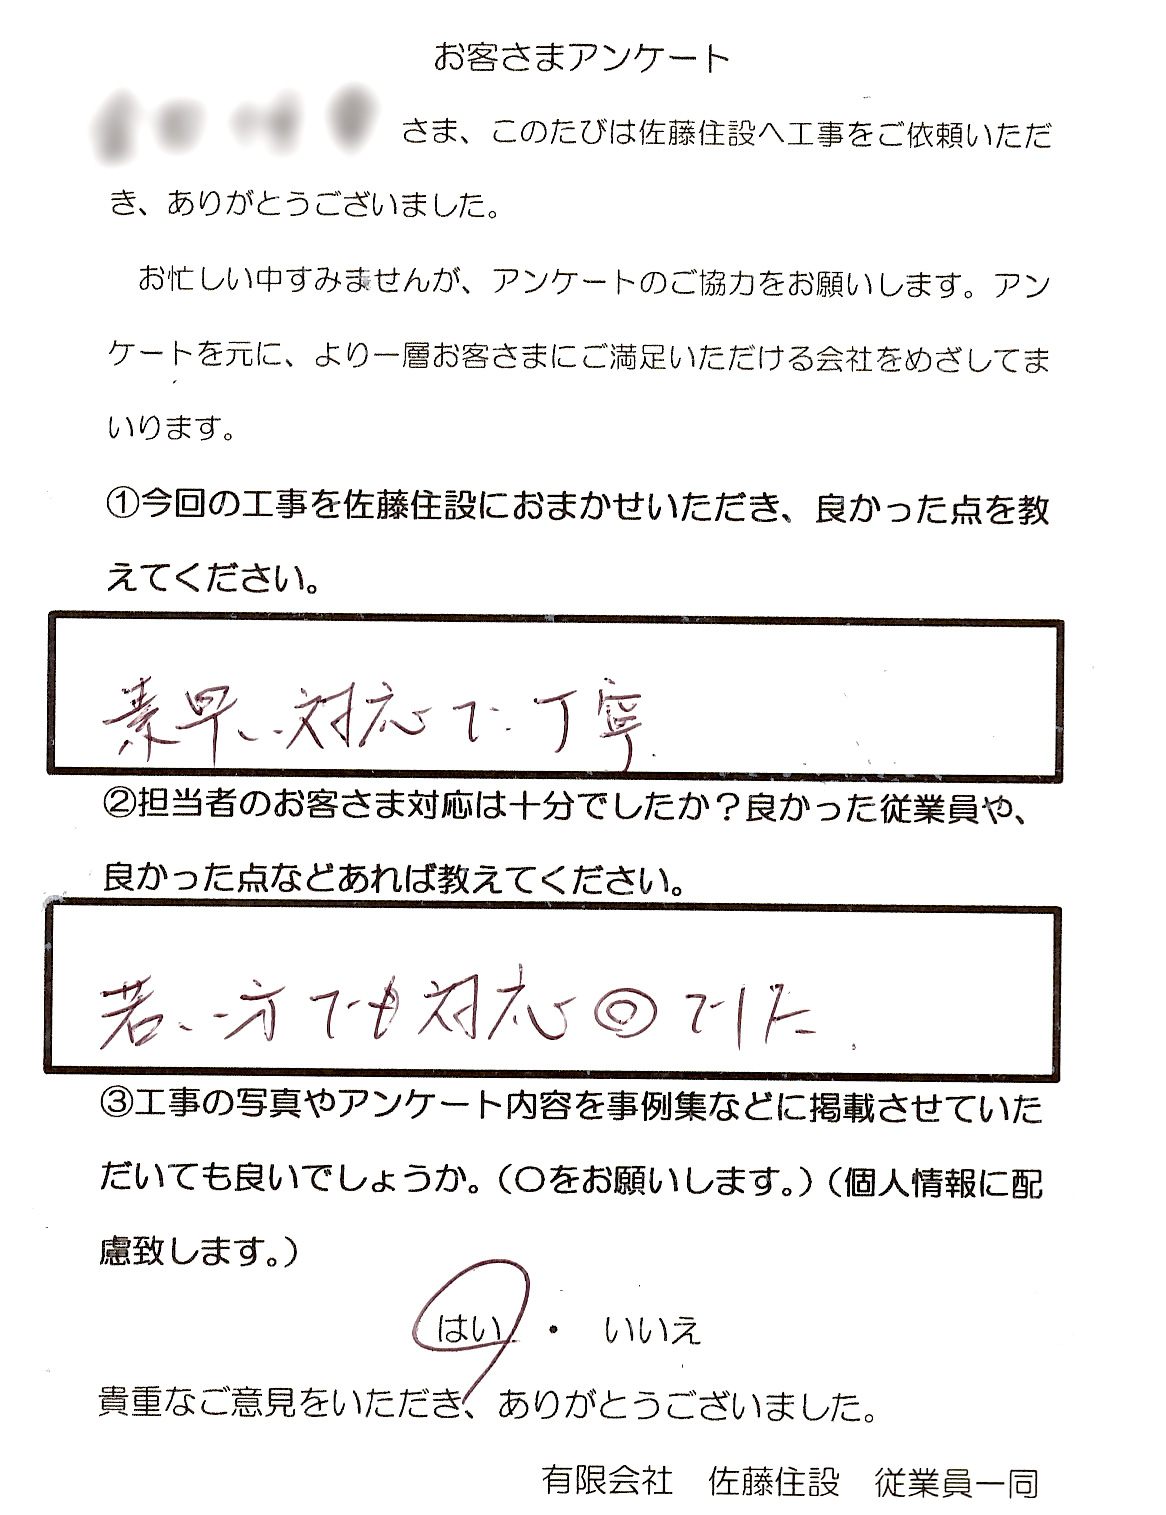 お客さまアンケート
さま、このたびは佐藤住設へ工事をご依頼いただ
き、ありがとうございました。
お忙しい中すみませんが、アンケートのご協力をお願いします。アン
ケートを元に、より一層お客さまにご満足いただける会社をめざしてま
いります。
①今回の工事を佐藤住設におまかせいただき、良かった点を教
えてください。
素早い対応で丁寧
②担当者のお客さま対応は十分でしたか？良かった従業員や、
良かった点などあれば教えてください。
若い方でも対応◎でした.
③工事の写真やアンケート内容を事例集などに掲載させていた
だいても良いでしょうか。（〇をお願いします。）（個人情報に配
慮致します。）
はい ・ いいえ
貴重なご意見をいただき、ありがとうございました。
有限会社 佐藤住設 従業員一同